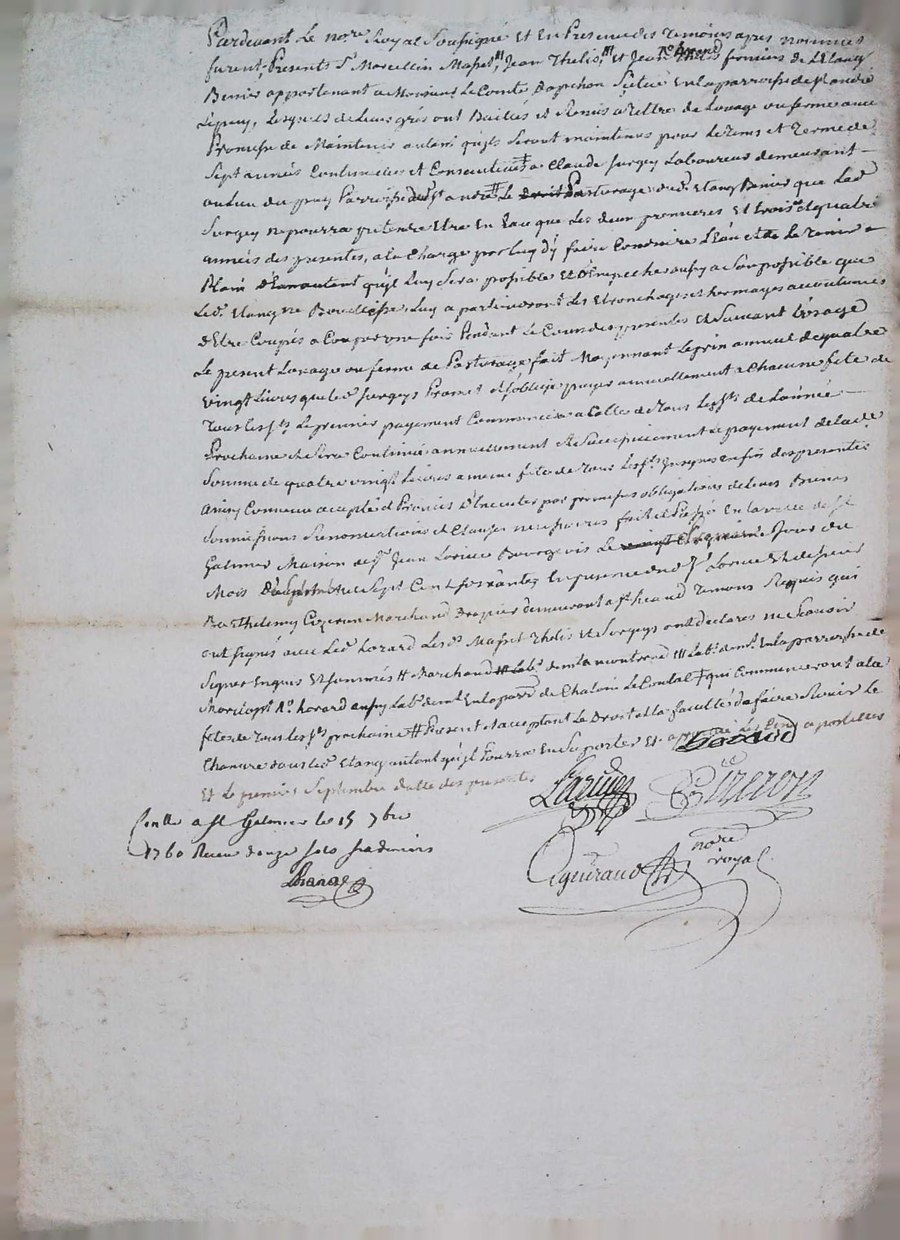 Pardevant Le nore Royal Soussigné Et En Presence des Temoins apres nommés
furent Presents Sr Marcellin Masset #, Jean Thelis #, et Jean fermiers de L'Etang
Benier appartenant a Monsieur Le Comte Dapchon Situé En la parroisse de St andré
Lepuy, Lesquels de Leurs grés ont Baillés et Remis a tiltre de Louage ou ferme avec
Promesse de Maintenir autant quils Seront maintenus pour Le tems et Terme de
Sept années Continuelles et Consecutives ‡ a Claude Surgey Laboureur demeurant
au Lieu du puy Parroisse dud st andré # Le Pasturage dud Etang Benier que Led
Surgey ne pourra pretendre Etre En Eau que Les deux premieres Et trois et quatre
années des presentes, a la Charge par luy dy faire Conduire L'Eau et de Le Tenir
Plein autant quil Luy Sera possible Et d'Empecher aussy a Son possible que
Led Etang ne Luy appartiendront Les Etronchages et hormages accoutumés
d'Etre Coupés a Couper une fois Pendant Le Cours des presentes et Suivant L'usage
Le present Louage ou ferme de Pasturage fait Moyennant Le prix annuel de quatre
vingt Livres que led Surgeys Promet et s'oblige payer annuellement a Chacune fete de
Tous les sts Le premier payement Commencera a Celle de Tous Les sts de L'année
Prochaine et Sera Continué annuellement et Successivement Le payement de lad
Somme de quatre vingt Livres a meme fete de Tous Les sts Jusques En fin des presentes
ainsy Convenu accepté et Promis Executer par promesses obligations de leurs Biens
Soumissions Renonciations et Clauses necessaires fait et Passé En la ville de st
Galmier Maison de sr Jean Bourgeois Le Jour du
Mois Mil Sept Cent soixante En presence dud sr et de sieur
Barthelemy Cizeron Marchand Drapier demeurant a st heand Temoins Requis qui
ont signés avec Led horard Les d Masset Thelis et Surgeys ont declarés ne Scavoir
Signer Enquis Et Sommés # Marchand # Labr demt a montrond /// Labr demt En la parroisse de
No. horard aussy Labr demt En la parr de Chalain Le Comtal ‡ qui Commenceront a la
fete de Tous Les sts prochaine # Present et acceptant Le Droit et la faculté de faire Rouir Le
Chanvre dans led Etang autant quil Pourra En Suporter Et
Et Le premier Septembre datte des presentes
horard
Cizeron
nore
royal
Conllé a St Galmier le 15 7bre
1760 Recu douze sols six deniers